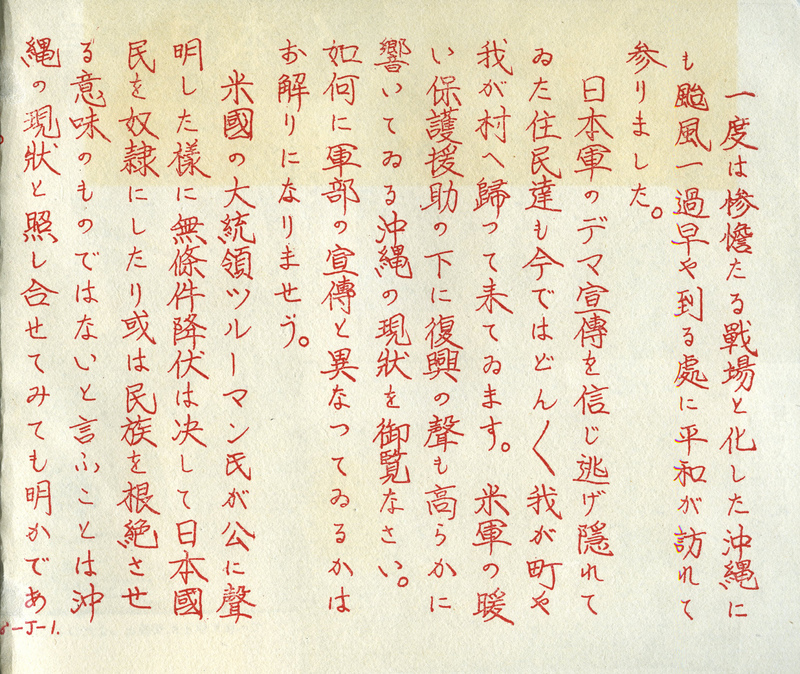 一度は惨憺たる戰場と化した沖縄に
も颱風一過早や到る處に平和が訪れて
参りました。
日本軍のデマ宣傳を信じ逃げ隠れて
ゐた住民達も今ではどん〱我が町や
我が村へ歸って来てゐます。米軍の暖
い保護援助の下に復興の聲も高らかに
響いてゐる沖縄の現狀を御覧なさい。
如何に軍部の宣傳と異なつてゐるかは
お解りになりませう。
米國の大統領ツルーマン氏が公に聲
明した樣に無條件降伏は決して日本國
民を奴隷にしたり或は民族を根絶させ
る意味のものではないと言ふことは沖
縄の現狀と照し合せてみても明かであ
-J-1.